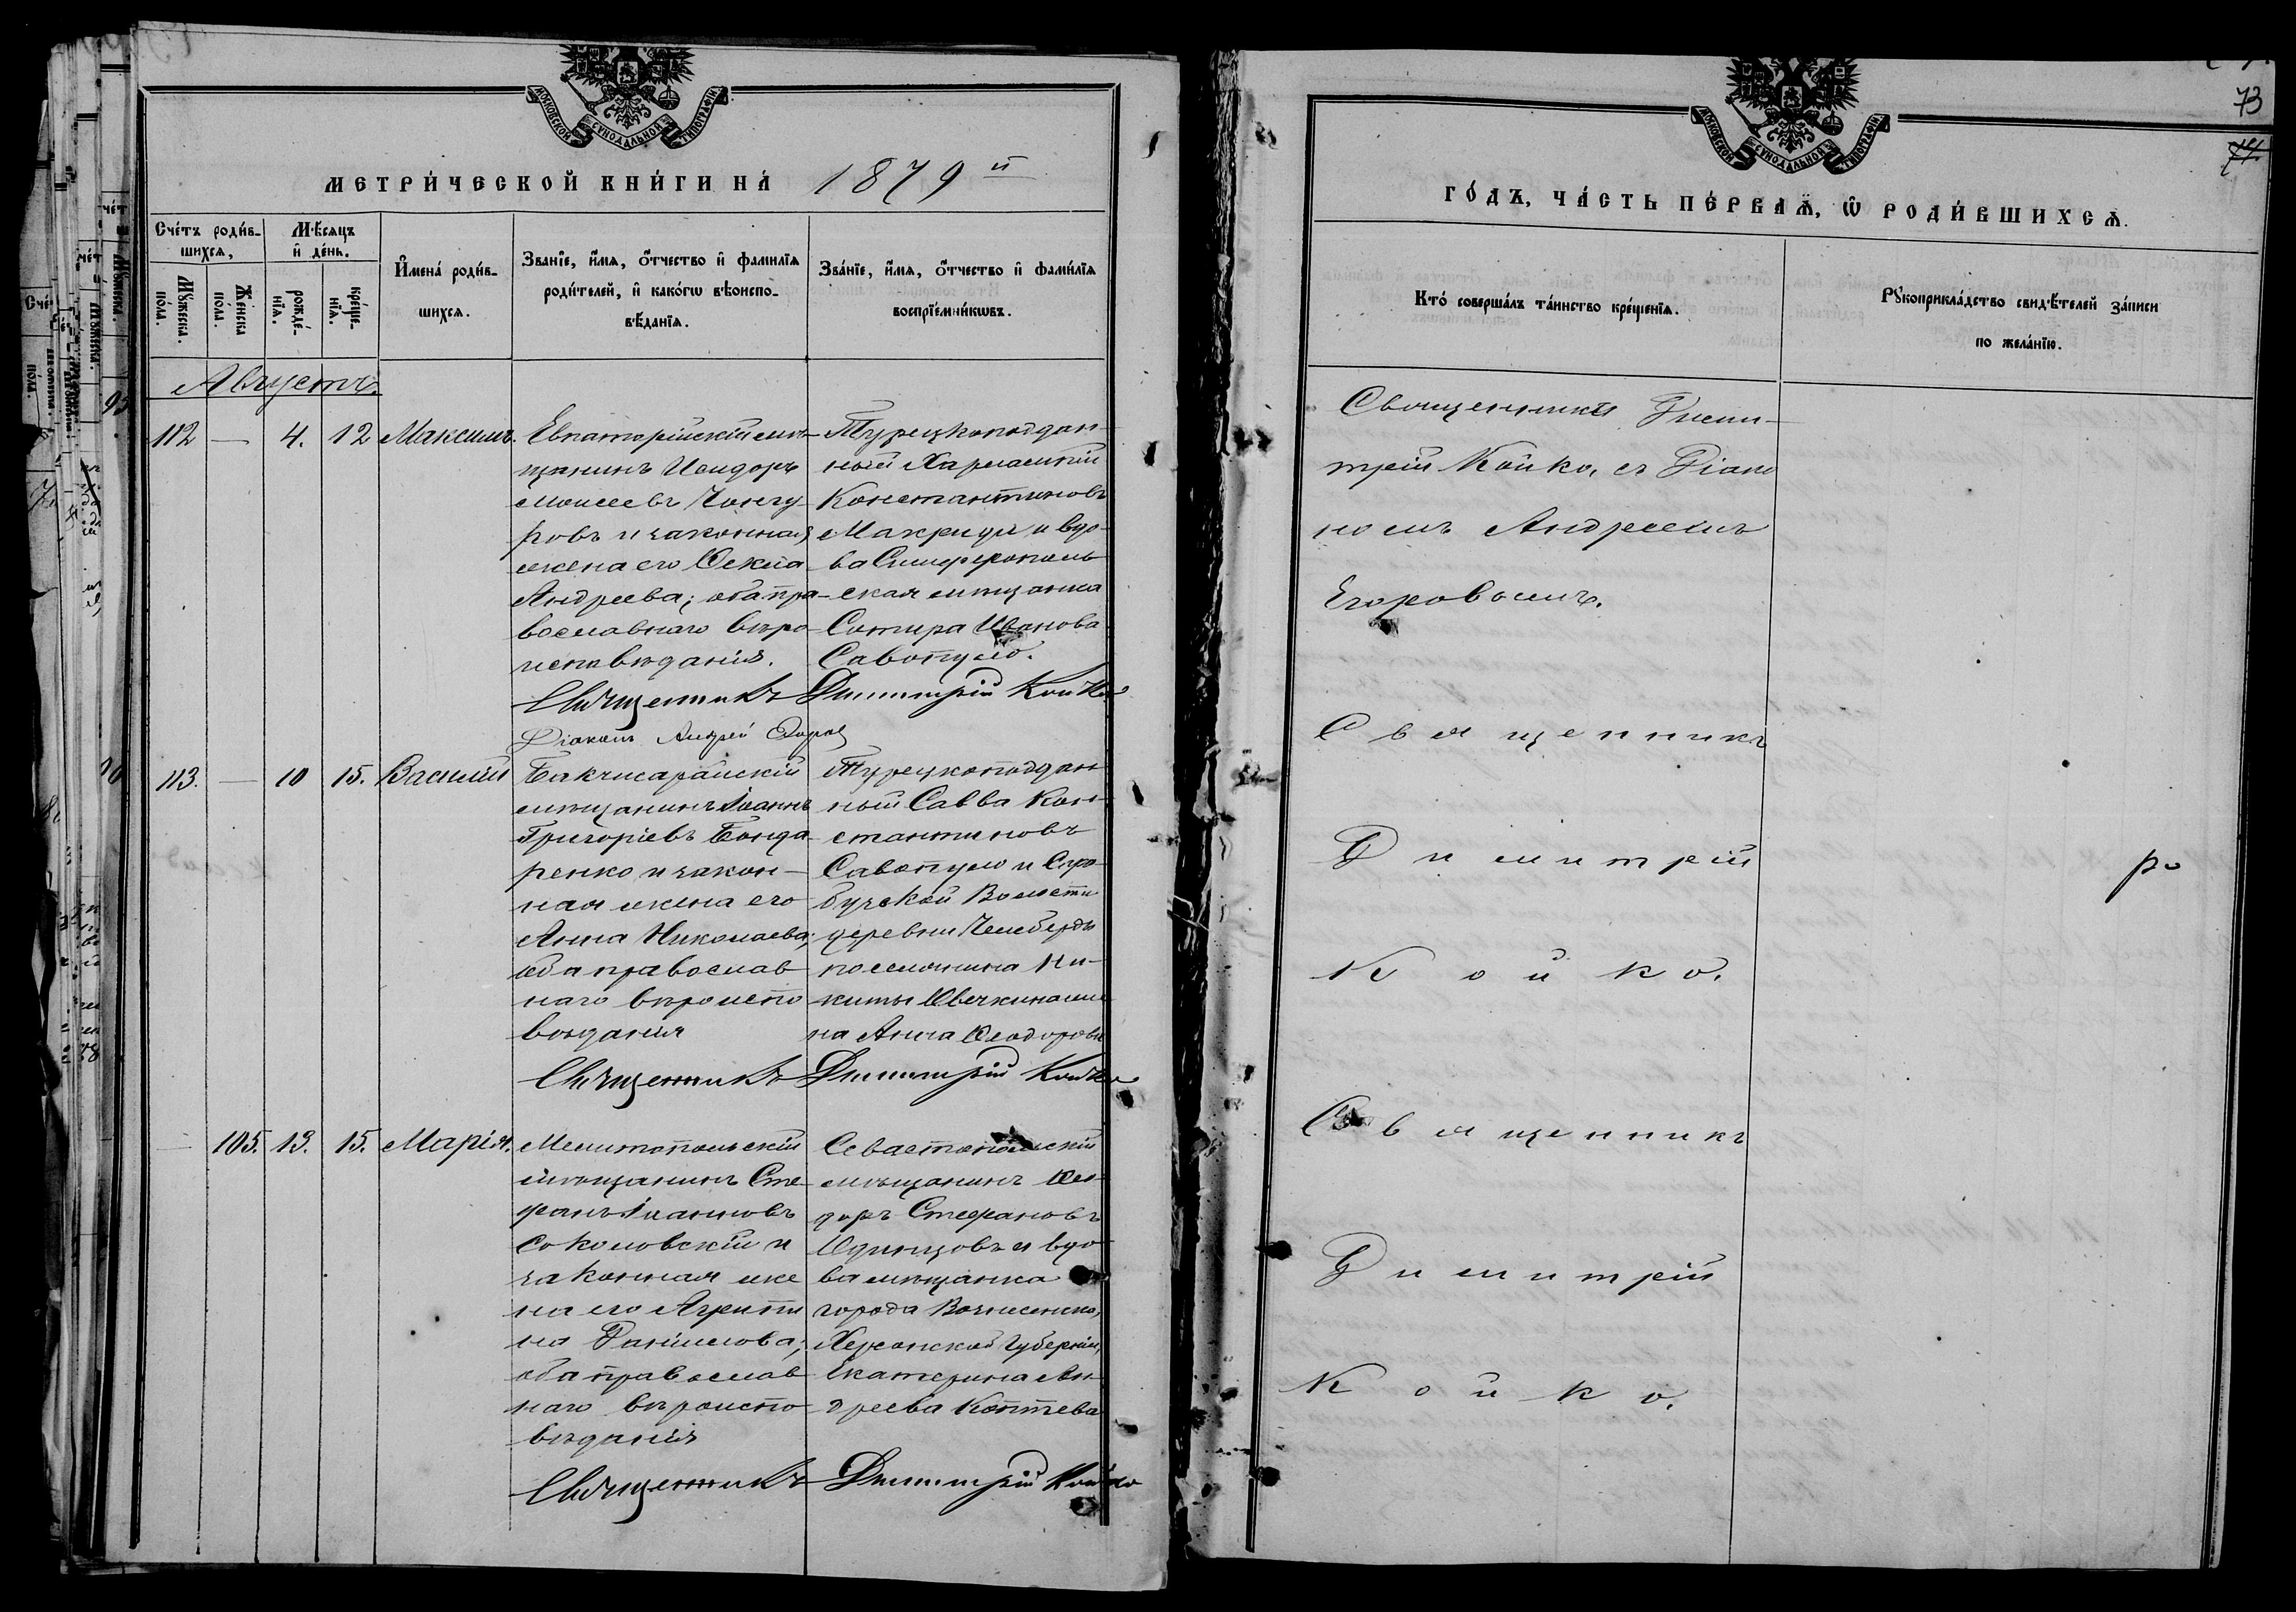 МОСКОВСКОЙ СѴНОДАЛЬНОЙ ТИПОГРАФІИ
МЕТРИ́ЧЕСКОЙ КНИ́ГИ НА́ 1879й
Сче́тъ роди́в-
шихся,
Мѣ́сяцъ
и҆ де́нь.
Мꙋ́жеска
по́ла.
Же́нска
по́ла.
рожде́-
нїѧ.
креще́-
нїѧ.
И҆мена̀ роди́в-
шихсѧ.
Зва́нїе, и҆́мѧ, ѻ҆́тчество и҆ фами́лїѧ
роди́телей, и҆ како́гѡ вѣ̑роиспо-
вѣ́данїѧ.
Зва́нїе, и҆́мѧ, ѻ҆́тчество и҆ фами́лїѧ
воспрїе́мникѡвъ.
Августъ.
112 — 4. 12 Максимъ.
Евпаторійскій мѣ-
щанинъ Исидоръ
Моисеевъ Чонгу-
ровъ и законная
жена его Фекла
Андреева; оба пра-
вославнаго вѣро-
исповѣданія.
Турецкоподдан-
ный Харлампій
Константиновъ
Макриди и вдо-
ва Симферополь
ская мѣщанка
Сотира Иванова
Савопуло.
Священникъ Димитрій Койко
Діаконъ Андрей Егоровъ
113. — 10 15. Василій
Бакчисарайскій
мѣщанинъ Іоаннъ
Григоріевъ Бонда-
ренко и закон-
ная жена его
Анна Николаева;
оба православ-
наго вѣроиспо
вѣданія
Турецкоподдан-
ный Савва Кон-
стантиновъ
Савопуло и
Волости
деревни
поселянина Ни-
киты Овечкина же
на Анна Феодорова
Священникъ Димитрій Койко
— 105. 13. 15. Марія.
Мелитопольскій
мѣщанинъ Сте-
фанъ Іоанновъ
Соколовскій и
законная же
на его Агрипи
на Даніилова;
оба православ
наго вѣроиспо
вѣданія
Севастопольскій
мѣщанинъ Фео-
доръ Стефановъ
Одинцовъ и вдо-
ва мѣщанка
города Вознесенска,
Херсонской Губерніи,
Екатерина Ан-
дреева Коптева
Священникъ Димитрій Койко
73
74
МОСКОВСКОЙ СѴНОДАЛЬНОЙ ТИПОГРАФІИ
ГО́ДЪ, ЧА́СТЬ ПЕ́РВАѦ, Ѡ҆ РОДИ́ВШИХСѦ.
Кто̀ соверша́лъ та́инство креще́нїѧ.
Рꙋкоприкла́дство свидѣ́телей за́писи
по жела́нїю.
Священникъ Дими-
трій Койко, съ Діако
номъ Андреемъ
Егоровымъ.
Священникъ
Димитрій
Койко.
Священникъ
Димитрій
Койко.